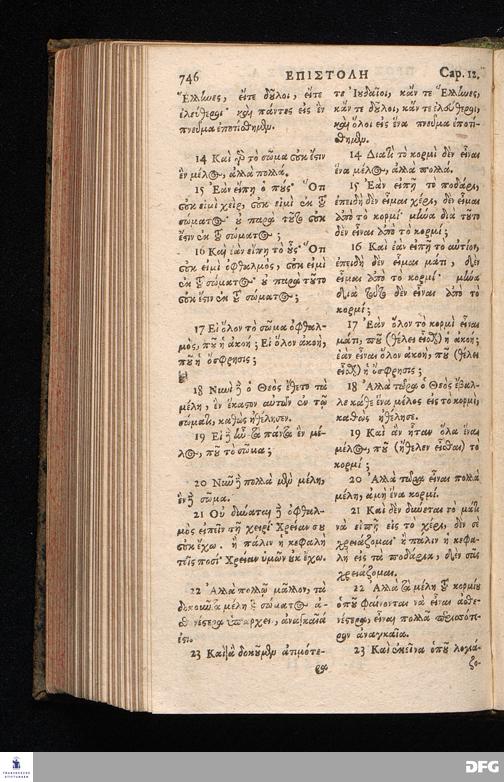 746
ΕΠΙΣΤΟΛΗ
Cap. 12.
Ἕλληνες, εἴτε δοῦλοι, εἴτε
ἐλεύθεροι· καὶ πάντες εἰς ἓν
πνεῦμα ἐποτίσθημεν.
14 Καὶ γὰρ τὸ σῶμα οὐκ ἔστιν
ἓν μέλος, ἀλλὰ πολλά.
15 Ἐὰν εἴπῃ ὁ πούς· Ὅτι
οὐκ εἰμὶ χεὶρ, οὐκ εἰμὶ ἐκ τοῦ
σώματος· οὐ παρὰ τοῦτο οὐκ
ἔστιν ἐκ τοῦ σώματος;
16 Καὶ ἐὰν εἴπῃ τὸ οὖς· Ὅτι
οὐκ εἰμὶ ὀφθαλμὸς, οὐκ εἰμὶ
ἐκ τοῦ σώματος· οὐ παρὰ τοῦτο
οὐκ ἔστιν ἐκ τοῦ σώματος;
17 Εἰ ὅλον τὸ σῶμα ὀφθαλ-
μὸς, ποῦ ἡ ἀκοή; Εἰ ὅλον ἀκοὴ,
ποῦ ἡ ὄσφρησις;
18 Νυνὶ δὲ ὁ Θεὸς ἔθετο τὰ
μέλη, ἓν ἕκαστον αὐτῶν ἐν τῷ
σώματι, καθὼς ἠθέλησεν.
19 Εἰ δὲ ἦν τὰ πάντα ἓν μέ-
λος, ποῦ τὸ σῶμα;
20 Νῦν δὲ πολλὰ μὲν μέλη,
ἓν δὲ σῶμα.
21 Οὐ δύναται δὲ ὀφθαλ-
μὸς εἰπεῖν τῇ χειρί· Χρείαν σου
οὐκ ἔχω. ἢ πάλιν ἡ κεφαλὴ
τοῖς ποσί· Χρείαν ὑμῶν οὐκ ἔχω.
22 Ἀλλὰ πολλῷ μᾶλλον, τὰ
δοκοῦντα μέλη τοῦ σώματος ἀ-
σθενέστερα ὑπάρχειν, ἀναγκαῖά
ἐστι.
23 Καὶ ἃ δοκοῦμεν ἀτιμότε-
ρα
τε Ἰουδαῖοι, κἄν τε Ἕλληνες,
κἄν τε δοῦλοι, κἄν τε ἐλεύθεροι,
καὶ ὅλοι εἰς ἕνα πνεῦμα ἐποτί-
σθημεν.
14 Διατὶ τὸ κορμὶ δὲν εἶναι
ἕνα μέλος, ἀλλὰ πολλά.
15 Ἐὰν εἰπῇ τὸ ποδάρι,
ἐπειδὴ δὲν εἶμαι χέρι, δὲν εἶμαι
ἀπὸ τὸ κορμί· μήνα διὰ τοῦτο
δὲν εἶναι ἀπὸ τὸ κορμί;
16 Καὶ ἐὰν εἰπῇ τὸ αὐτίον,
ἐπειδὴ δὲν εἶμαι μάτι, δὲν
εἶμαι ἀπὸ τὸ κορμί· μήνα
διὰ τοῦτο δὲν εἶναι ἀπὸ τὸ
κορμί;
17 Ἐὰν ὅλον τὸ κορμὶ εἶναι
μάτι, ποῦ (θέλει εἶσθαι) ἡ ἀκοή;
ἐὰν εἶναι ὅλον ἀκοὴ, ποῦ (θέλει
εἶσθαι) ἡ ὄσφρησις;
18 Ἀλλὰ τώρα ὁ Θεὸς ἔβαλ-
λε κάθε ἕνα μέλος εἰς τὸ κορμὶ,
καθὼς ἠθέλησε.
19 Καὶ ἂν ἦταν ὅλα ἕνα
μέλος, ποῦ (ἤθελεν εἶσθαι) τὸ
κορμί;
20 Ἀλλὰ τώρα εἶναι πολλὰ
μέλη, ἀμὴ ἕνα κορμί.
21 Καὶ δὲν δύνεται τὸ μάτι
νὰ εἰπῇ εἰς τὸ χέρι, δὲν σὲ
χρειάζομαι· ἢ πάλιν ἡ κεφα-
λὴ εἰς τὰ ποδάρια, δὲν σᾶς
χρειάζομαι.
22 Ἀλλὰ τὰ μέλη τοῦ κορμίου
ὁποῦ φαίνονται νὰ εἶναι ἀσθε-
νέστερα, εἶναι πολλὰ περισσότε-
ρον ἀναγκαῖα.
23 Καὶ ἐκεῖνα ὁποῦ λογιά-
ζο-
DFG